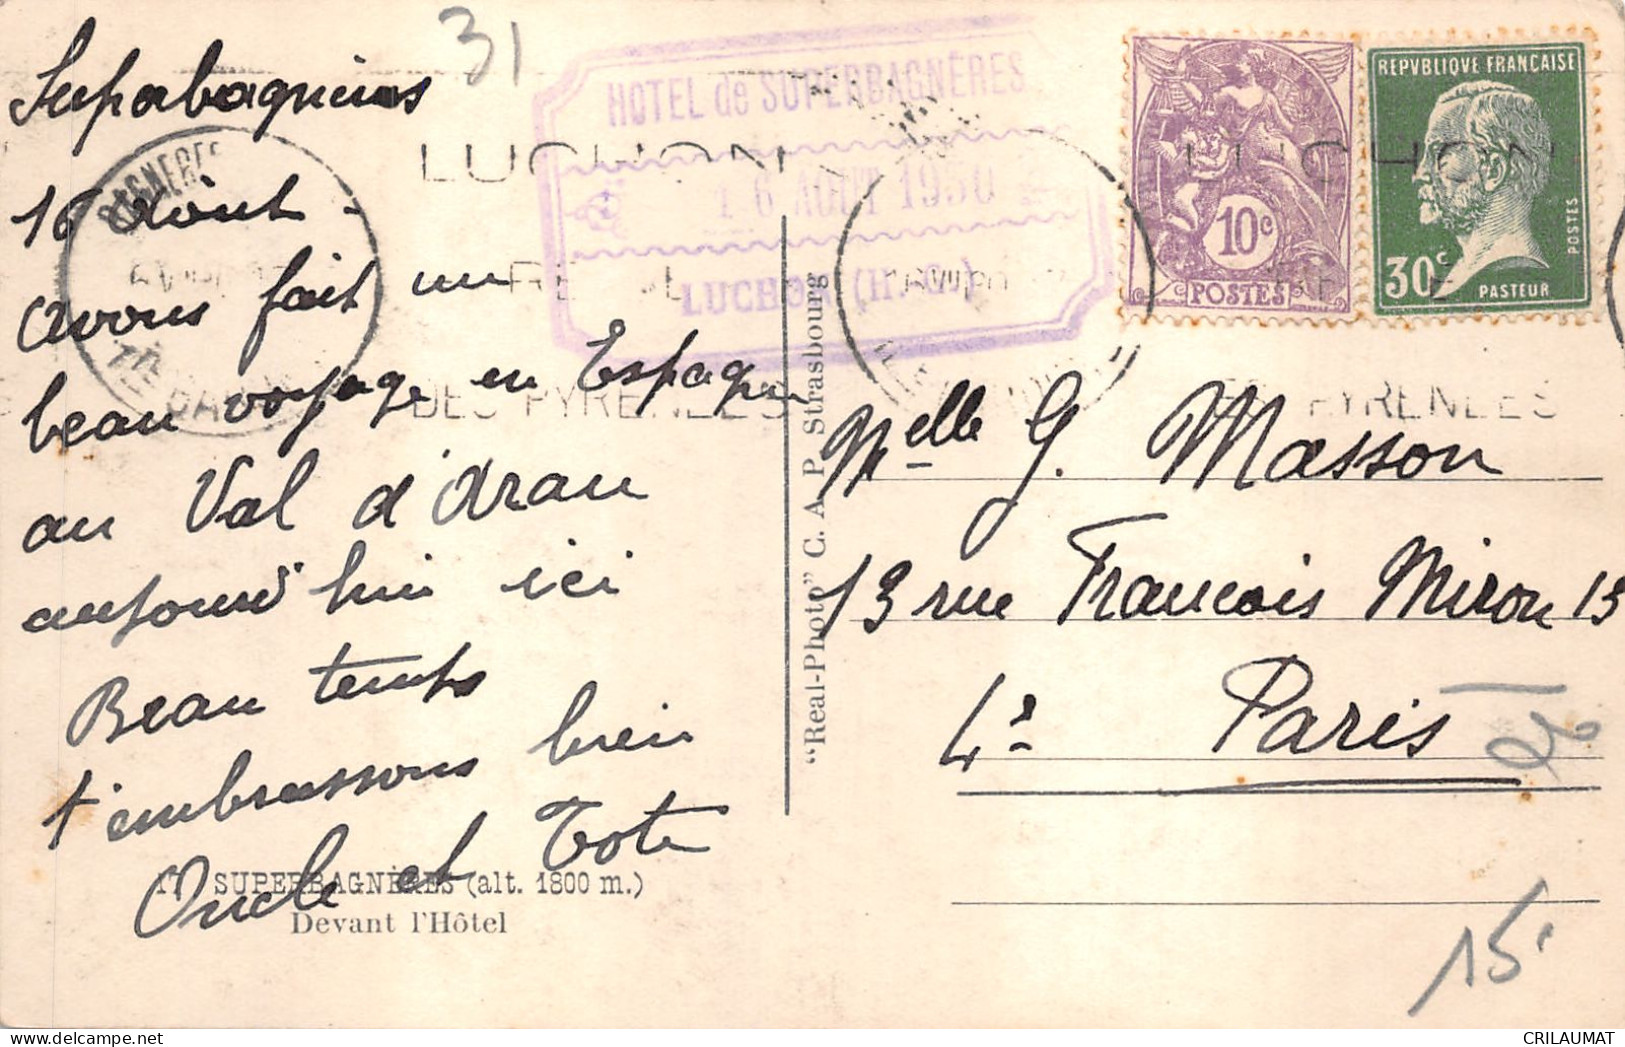 31
Superbagnères
16 Août -
avons fait un
beau voyage en Espagne
au Val d'Aran
aujourd'hui ici
Beau temps
t'embrassons bien
Oncle et Tote
17 SUPERBAGNÈRES (alt. 1800 m.)
Devant l'Hôtel
HOTEL de SUPERBAGNÈRES
16 AOUT 1930
LUCHON (H.-G.)
BAGNERES
LUCHON
DES PYRENEES
"Real-Photo" C. A. P. Strasbourg
10c
POSTES
REPVBLIQVE FRANÇAISE
30c
POSTES
PASTEUR
LUCHON
PYRENEES
Melle G. Masson
13 rue Francois Miron 13
4e Paris
15
CRILAUMAT